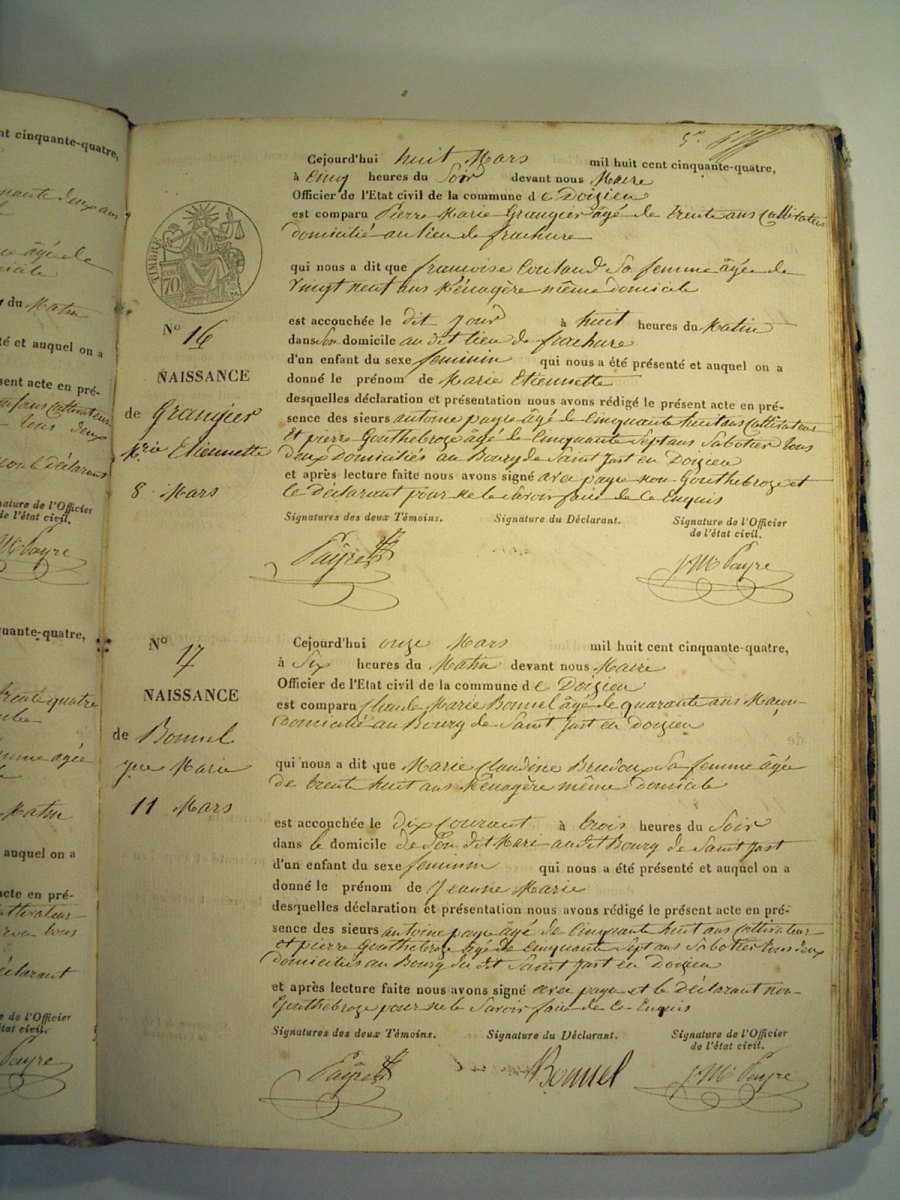 nt cinquante-quatre,
du Matin
té et auquel on a
sent acte en pré-
nature de l'Officier
de l'état civil.
M Payre
quante-quatre,
Matin
auquel on a
acte en pré-
déclarant
e de l'Officier
état civil.
Payre
5.
Cejourd'hui huit Mars mil huit cent cinquante-quatre,
à Cinq heures du Soir devant nous Maire
Officier de l'Etat civil de la commune de Doizieu
est comparu Pierre Marie Grangier âgé de trente ans Cultivateur
domicilié au lieu de frachure
qui nous a dit que françoise Coutaud Sa femme âgée de
Vingt neuf ans Ménagère même domicile
est accouchée le dit Jour à huit heures du Matin
dans Son domicile au dit lieu de frachure
d'un enfant du sexe feminin qui nous a été présenté et auquel on a
donné le prénom de Marie Etiennette
desquelles déclaration et présentation nous avons rédigé le présent acte en pré-
sence des sieurs antoine payre âgé de Cinquante huit ans Cultivateur
Et pierre Gouthebroze âgé de Cinquante Sept ans Sabotier tous
deux Domiciliés au Bourg de Saint Just en Doizieu
et après lecture faite nous avons signé avec payre non Gouthebroze et
le Déclarant pour ne le Savoir faire de ce Enquis
Signatures des deux Témoins. Signature du Déclarant. Signature de l'Officier
de l'état civil.
Payre J M Payre
TIMBRE
70
No 16
NAISSANCE
de Grangier
Mrie Etiennette
8 Mars
No 17
NAISSANCE
de Bonnel
Jne Marie
11 Mars
Cejourd'hui onze Mars mil huit cent cinquante-quatre,
à Six heures du Matin devant nous Maire
Officier de l'Etat civil de la commune de Doizieu
est comparu Claude Marie Bonnel âgé de quarante ans Maçon
domicilié au Bourg de Saint Just en Doizieu
qui nous a dit que Marie Claudine Sa femme âgée
de trente huit ans Ménagère même domicile
est accouchée le dix courant à trois heures du Soir
dans le domicile de Son dit Mari au dit Bourg de Saint Just
d'un enfant du sexe feminin qui nous a été présenté et auquel on a
donné le prénom de Jeanne Marie
desquelles déclaration et présentation nous avons rédigé le présent acte en pré-
sence des sieurs antoine payre âgé de Cinquante huit ans Cultivateur
et pierre Gouthebroze âgé de Cinquante Sept ans Sabotier tous deux
domiciliés au Bourg du dit Saint Just en Doizieu
et après lecture faite nous avons signé avec payre et le Déclarant non
Gouthebroze pour ne le Savoir faire de ce Enquis
Signatures des deux Témoins. Signature du Déclarant. Signature de l'Officier
de l'état civil.
Payre Bonnel J M Payre